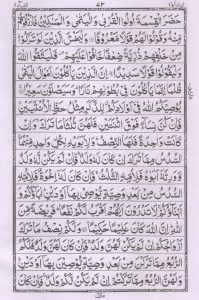 حَضَرَ الْقِسْمَةَ اُولُوا الْقُرْبٰى وَالْيَتٰمٰى وَالْمَسٰكِيْنُ فَارْزُقُوْهُمْ
مِّنْهُ وَقُوْلُوْا لَهُمْ قَوْلًا مَّعْرُوْفًا وَلْيَخْشَ الَّذِيْنَ لَوْ تَرَكُوْا
مِنْ خَلْفِهِمْ ذُرِّيَّةً ضِعٰفًا خَافُوْا عَلَيْهِمْ فَلْيَتَّقُوا اللّٰهَ
وَلْيَقُوْلُوْا قَوْلًا سَدِيْدًا اِنَّ الَّذِيْنَ يَاْكُلُوْنَ اَمْوَالَ الْيَتٰمٰى
ظُلْمًا اِنَّمَا يَاْكُلُوْنَ فِيْ بُطُوْنِهِمْ نَارًا وَسَيَصْلَوْنَ سَعِيْرًا
يُوْصِيْكُمُ اللّٰهُ فِيْ اَوْلَادِكُمْ لِلذَّكَرِ مِثْلُ حَظِّ الْاُنْثَيَيْنِ
فَاِنْ كُنَّ نِسَآءً فَوْقَ اثْنَتَيْنِ فَلَهُنَّ ثُلُثَا مَا تَرَكَ وَاِنْ
كَانَتْ وَاحِدَةً فَلَهَا النِّصْفُ وَلِاَبَوَيْهِ لِكُلِّ وَاحِدٍ مِّنْهُمَا
السُّدُسُ مِمَّا تَرَكَ اِنْ كَانَ لَهٗ وَلَدٌ فَاِنْ لَّمْ يَكُنْ لَّهٗ وَلَدٌ
وَّوَرِثَهٗٓ اَبَوٰهُ فَلِاُمِّهِ الثُّلُثُ فَاِنْ كَانَ لَهٗٓ اِخْوَةٌ فَلِاُمِّهِ
السُّدُسُ مِنْۢ بَعْدِ وَصِيَّةٍ يُّوْصِيْ بِهَآ اَوْ دَيْنٍ اٰبَآؤُكُمْ وَ
اَبْنَآؤُكُمْ لَا تَدْرُوْنَ اَيُّهُمْ اَقْرَبُ لَكُمْ نَفْعًا فَرِيْضَةً مِّنَ
اللّٰهِ اِنَّ اللّٰهَ كَانَ عَلِيْمًا حَكِيْمًا وَلَكُمْ نِصْفُ مَا تَرَكَ
اَزْوَاجُكُمْ اِنْ لَّمْ يَكُنْ لَّهُنَّ وَلَدٌ فَاِنْ كَانَ لَهُنَّ وَلَدٌ فَلَكُمُ
الرُّبُعُ مِمَّا تَرَكْنَ مِنْۢ بَعْدِ وَصِيَّةٍ يُّوْصِيْنَ بِهَآ اَوْ دَيْنٍ
وَلَهُنَّ الرُّبُعُ مِمَّا تَرَكْتُمْ اِنْ لَّمْ يَكُنْ لَّكُمْ وَلَدٌ فَاِنْ كَانَ